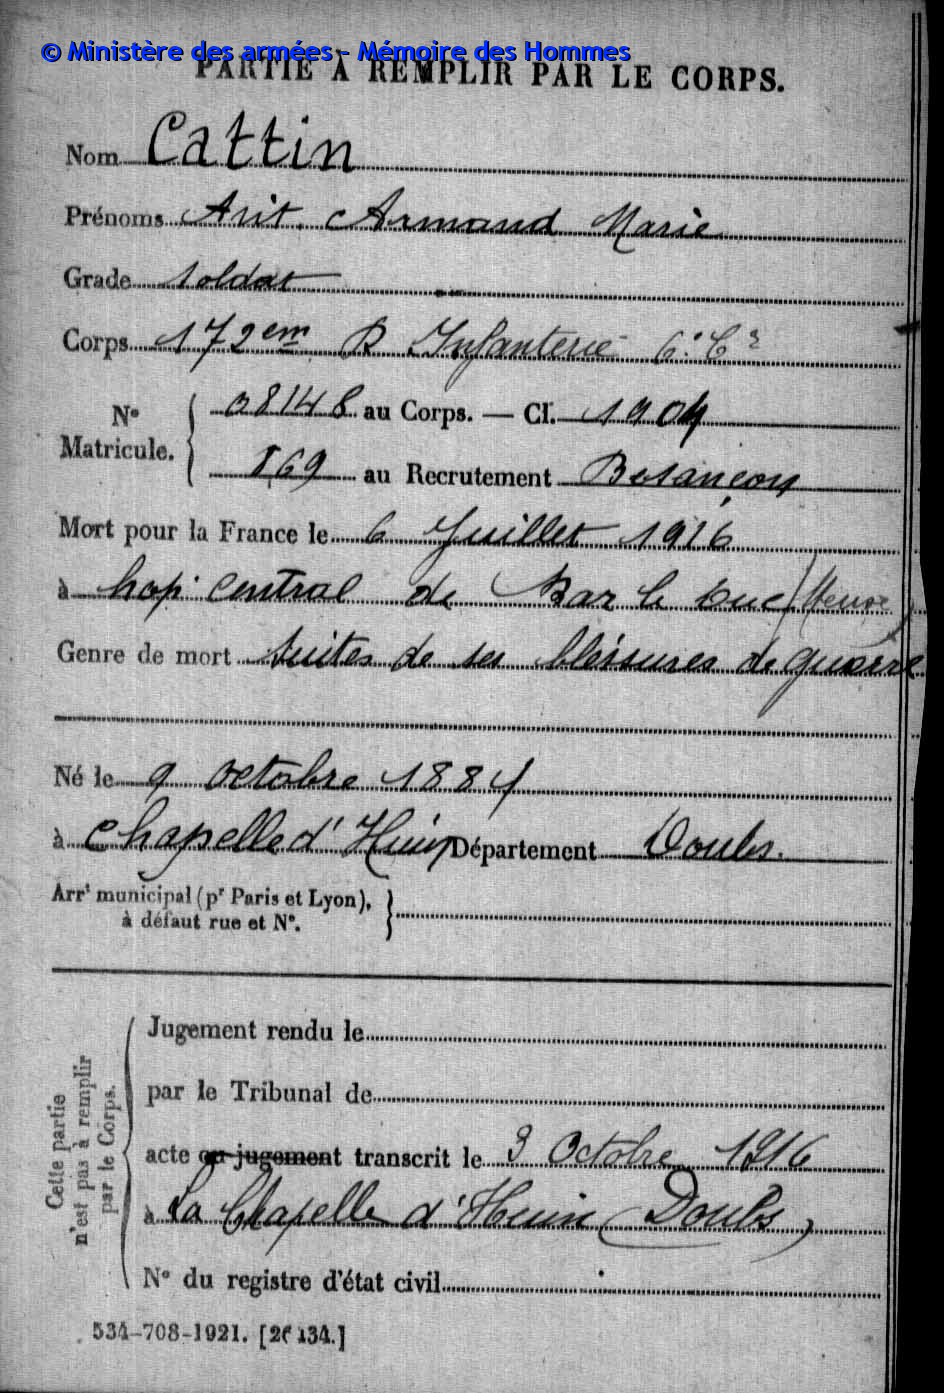 © Ministère des armées - Mémoire des Hommes
PARTIE À REMPLIR PAR LE CORPS.
Nom Cattin
Prénoms Arit. Armand Marie
Grade Soldat
Corps 172em R Infanterie 6e Cie
No Matricule. 08148 au Corps. — Cl. 1904
869 au Recrutement Besançon
Mort pour la France le 6 Juillet 1916
à hop. central de Bar le Duc (Meuse)
Genre de mort Suites de ses blessures de guerre
Né le 9 octobre 1884
à Chapelle d'Huin Département Doubs.
Arrt municipal (pr Paris et Lyon),
à défaut rue et No.
Cette partie
n'est pas à remplir
par le Corps.
Jugement rendu le
par le Tribunal de
acte ou jugement transcrit le 3 Octobre 1916
à La Chapelle d'Huin (Doubs)
No du registre d'état civil
534-708-1921. [26434.]